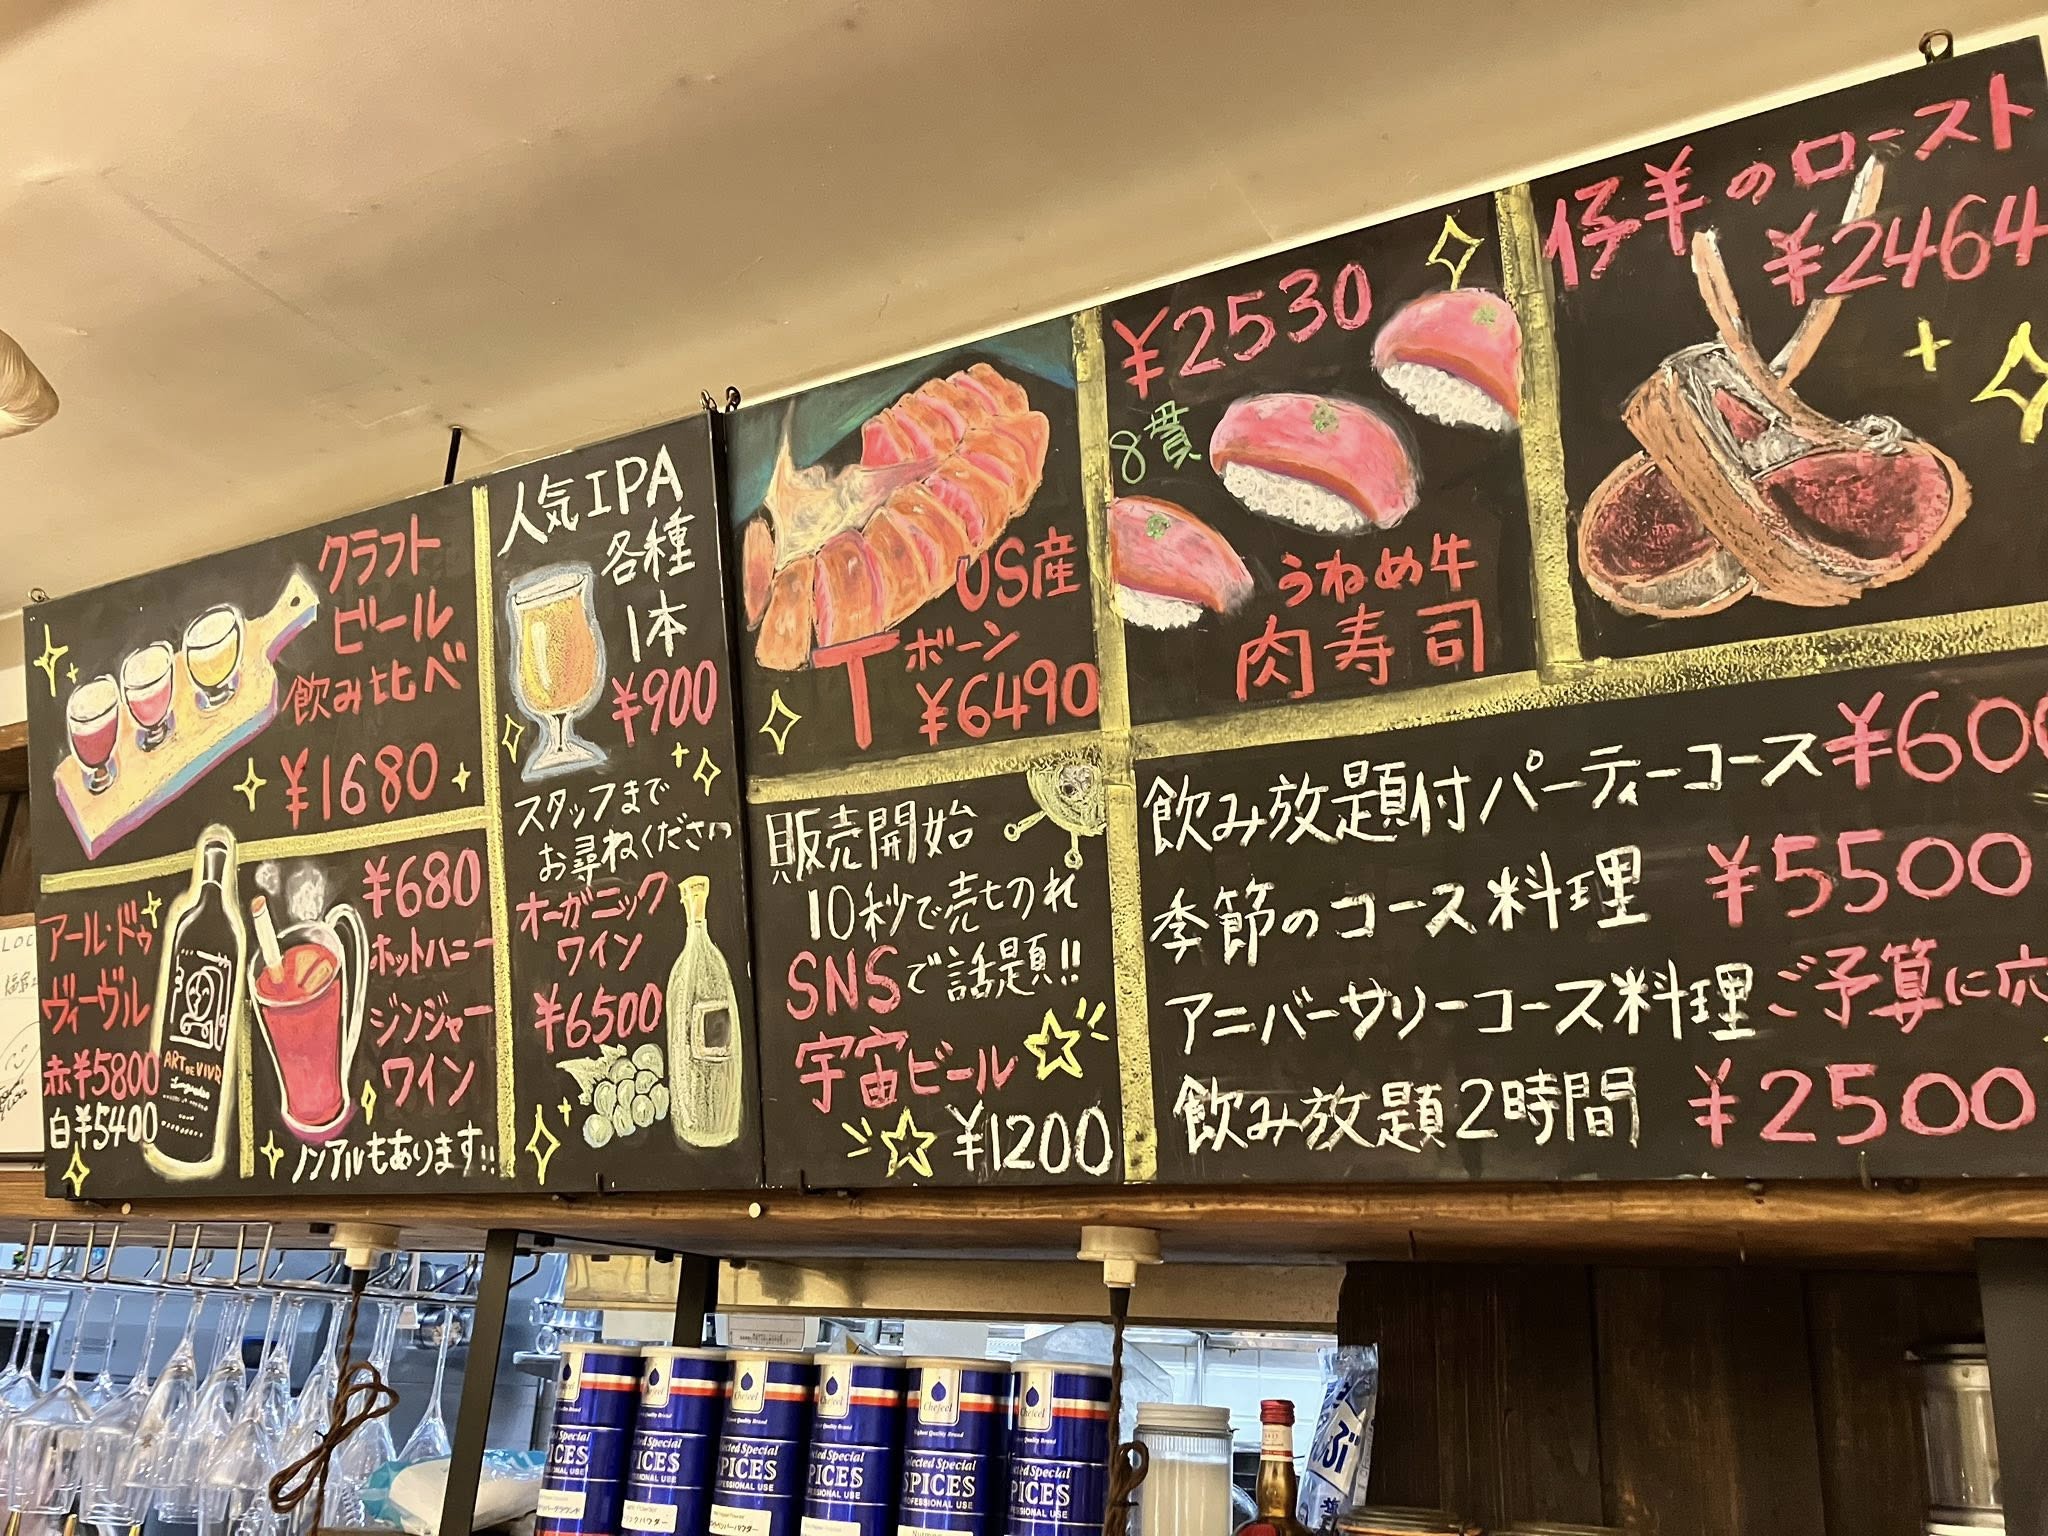 クラフト
ビール
飲み比べ
¥1680
人気IPA
各種
1本
¥900
スタッフまで
お尋ねください
アール・ドゥ
ヴィーヴル
赤¥5800
白¥5400
ART DE VIVR
¥680
ホットハニー
ジンジャー
ワイン
ノンアルもあります!!
オーガニック
ワイン
¥6500
US産
Tボーン
¥6490
¥2530
8貫
うねめ牛
肉寿司
仔羊のロースト
¥2464
販売開始
10秒で売り切れ
SNSで話題!!
宇宙ビール
¥1200
飲み放題付パーティーコース¥600
季節のコース料理 ¥5500
アニバーサリーコース料理ご予算に応
飲み放題2時間 ¥2500
LOC
Chefeel
Highest Quality Brand
Selected Special
SPICES
PROFESSIONAL USE